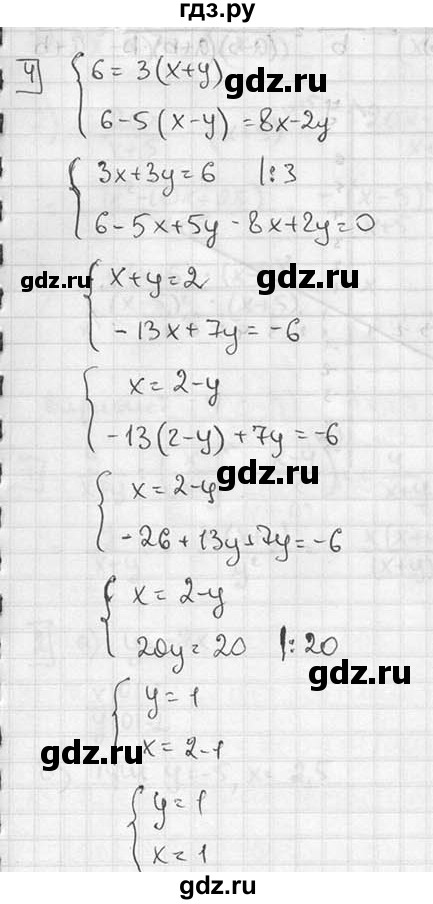 гдз.ру
4 { 6 = 3(x+y)
6-5(x-y) = 8x-2y
gdz.ru
{ 3x+3y=6 |:3
6-5x+5y-8x+2y=0
gdz.ru
gdz.ru
{ x+y=2
-13x+7y=-6
{ x=2-y
-13(2-y)+7y=-6
gdz.ru
{ x=2-y
-26+13y+7y=-6
{ x=2-y
20y=20 |:20
gdz.ru
{ y=1
x=2-1
gdz.ru
{ y=1
x=1
gdz.ru